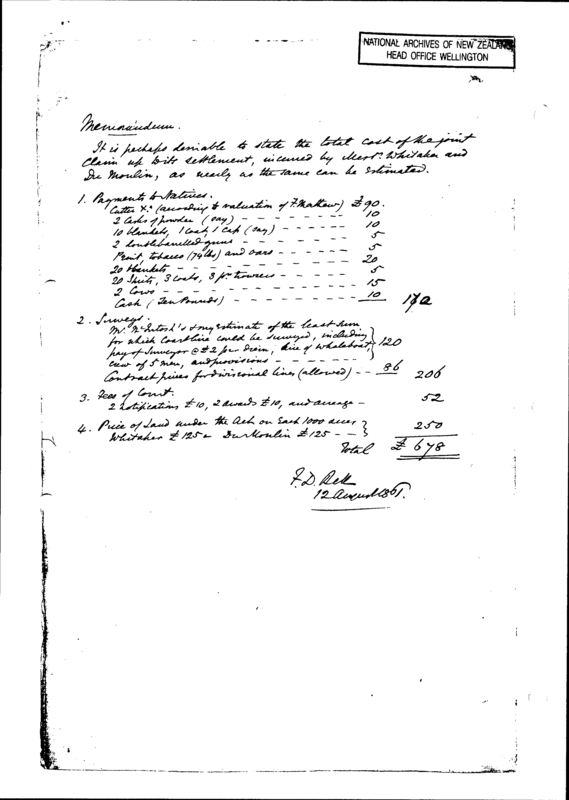 NATIONAL ARCHIVES OF NEW ZEALAND
HEAD OFFICE WELLINGTON
Memorandum.
It is perhaps desirable to state the total cost of the joint
Claim up to its settlement, incurred by Messrs. Whitaker and
Du Moulin, as nearly as the same can be estimated.
1. Payments to Natives.
Cutter &c (according to valuation of F. Mathew) £90.
2 Casks of powder (say) - - - - - - 10
10 blankets, 1 coat, 1 cap (say) - - - - - - 10
2 double barrelled guns - - - - - - 5
tobacco (74 lbs) and - - - - - 5
20 blankets - - - - - - 20
20 Shirts, 3 coats, 3 pr. trowsers - - - - - 5
2 Cows - - - - - - 15
Cash (Ten Pounds) - - - - - 10 170
2. Surveys.
Mr. McIntosh's & my estimate of the least sum
for which Coastline could be surveyed, including
pay of Surveyor @ £2 per diem, hire of Whaleboat, 120
crew of 5 men, and provisions - - - - - -
Contract prices for divisional lines (allowed) - - 86 206
3. Fees of Court.
2 notifications £10, 2 awards £10, and acreage - 52
4. Price of Land under the Act on Each 1000 acres
Whitaker £125 Du Moulin £125 - - 250
Total £ 678
F. D. Bell
12 August 1861.